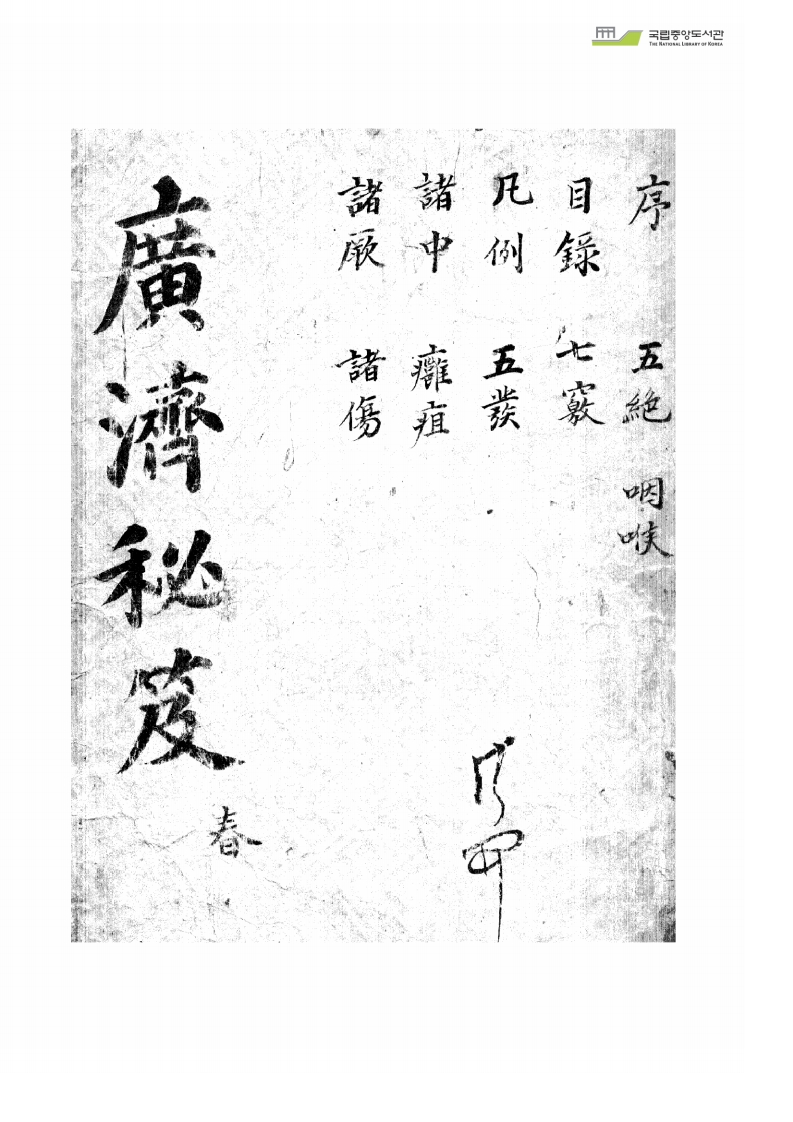 국립중앙도서관
THE NATIONAL LIBRARY OF KOREA
序 五絶 咽喉
目錄 七竅
凡例 五發
諸中 癰疽
諸厥 諸傷
廣濟秘笈 春